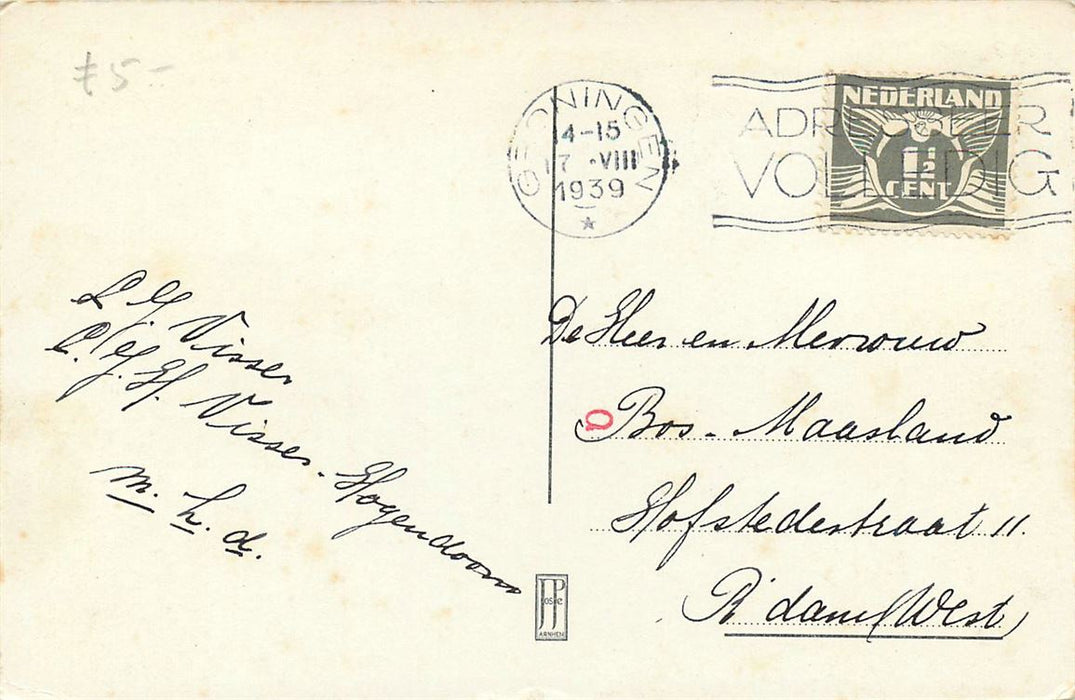 £5-
GRONINGEN
14-15
17 ·VIII
1939
ADRESSEER
VOLLEDIG
NEDERLAND
1½
CENT
L. J. Visser
C. J. H. Visser-Hogendoorn
m. h. d.
De Heer en Mevrouw
Bos-Maasland
a
Hofstedestraat 11.
R'dam (West)
JOSPE
ARNHEM